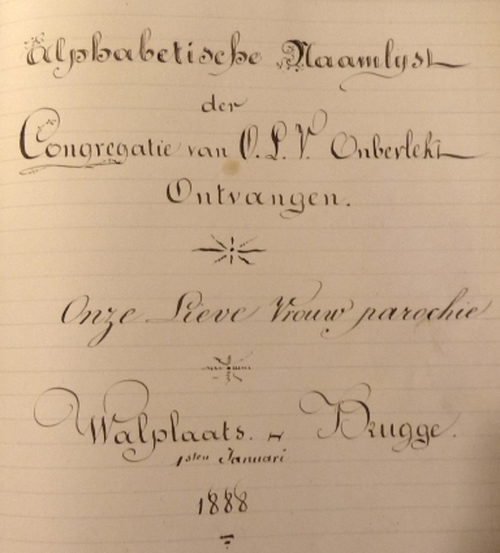 Alphabetische Naamlyst
der
Congregatie van O. L. V. Onberlekt
Ontvangen.
Onze Lieve Vrouw parochie
Walplaats. Brugge.
1sten Januari
1888